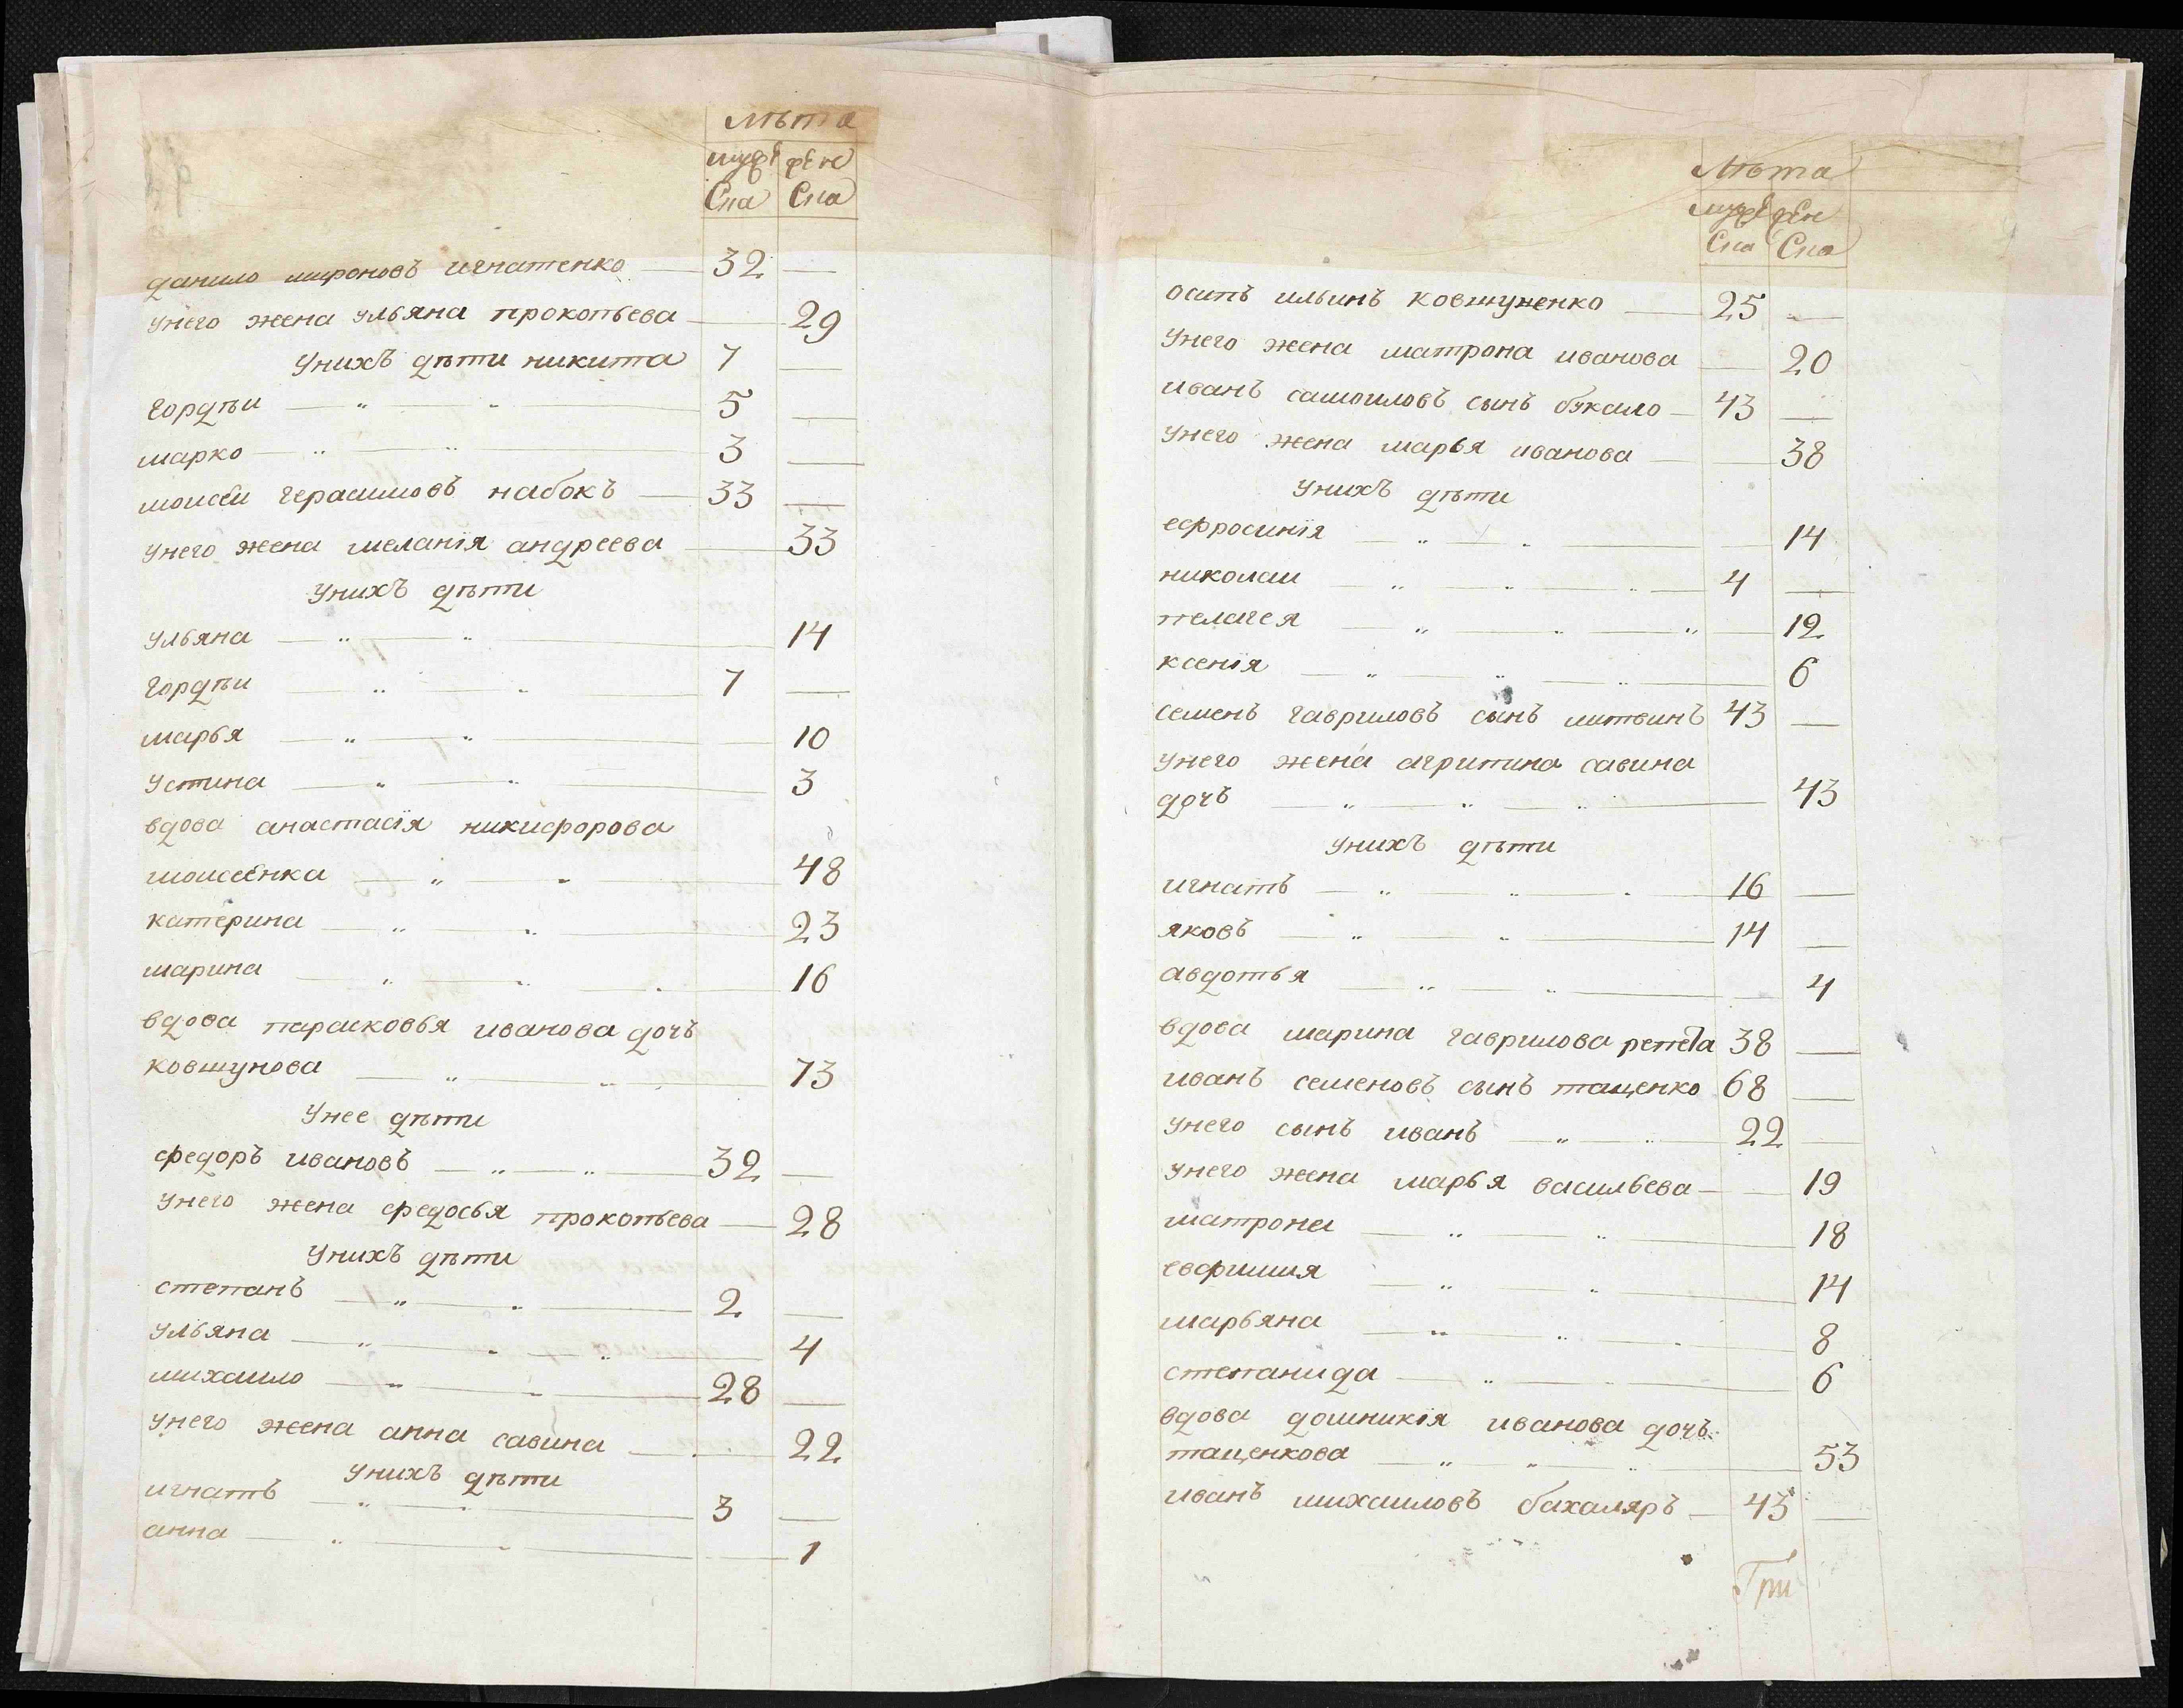 лѣта
муже жен
ска ска
данило мироновъ игнатенко 32 —
унего жена ульяна прокопьева — 29
унихъ дѣти никита 7 —
гордѣи — „ — „ — 5 —
марко — „ — „ — 3 —
моисеи герасимовъ набокъ — 33 —
унего жена меланія андреева — 33
унихъ дѣти
ульяна — „ — „ — 14
гордѣи — „ — „ — 7 —
марья — „ — „ — 10
устина — „ — „ — 3
вдова анастасія никифорова
моисеенка — „ — „ — 48
катерина — „ — „ — 23
марина — „ — „ — „ 16
вдова парасковья иванова дочь
ковшунова — „ — „ — 73
унее дѣти
федоръ ивановъ — „ — „ — 32 —
унего жена федосья прокопьева — 28
унихъ дѣти
степанъ — „ — „ — 2 —
ульяна — „ — „ — „ — 4
михаило — „ — „ — 28 —
унего жена анна савина — 22
унихъ дѣти
игнатъ — „ — „ — 3 —
анна — „ — „ — 1
Лѣта
муже жен
ска ска
осипъ ильинъ ковшуненко — 25 —
унего жена матрона иванова — 20
иванъ самоиловъ сынъ букало — 43 —
унего жена марья иванова — 38
унихъ дѣти
ефросинія — „ — „ — 14
николаи — „ — „ — „ — 4 —
пелагея — „ — „ — „ — 12
ксенія — „ — „ — „ — 6
семенъ гавриловъ сынъ литвинъ 43 —
унего жена агрипина савина
дочъ — „ — „ — „ — 43
унихъ дѣти
игнатъ — „ — „ — „ 16 —
яковъ — „ — „ — 14 —
авдотья — „ — „ — 4
вдова марина гаврилова 38 —
иванъ семеновъ сынъ тащенко 68 —
унего сынъ иванъ — „ — „ — 22 —
унего жена марья васильева — 19
матрона — „ — „ — 18
евфимия — „ — „ — 14
марьяна — „ — „ — „ — 8
степанида — „ — „ — 6
вдова домникія иванова дочъ
тащенкова — „ — „ — „ — 53
иванъ михаиловъ бахаляръ — 43 —
Гри